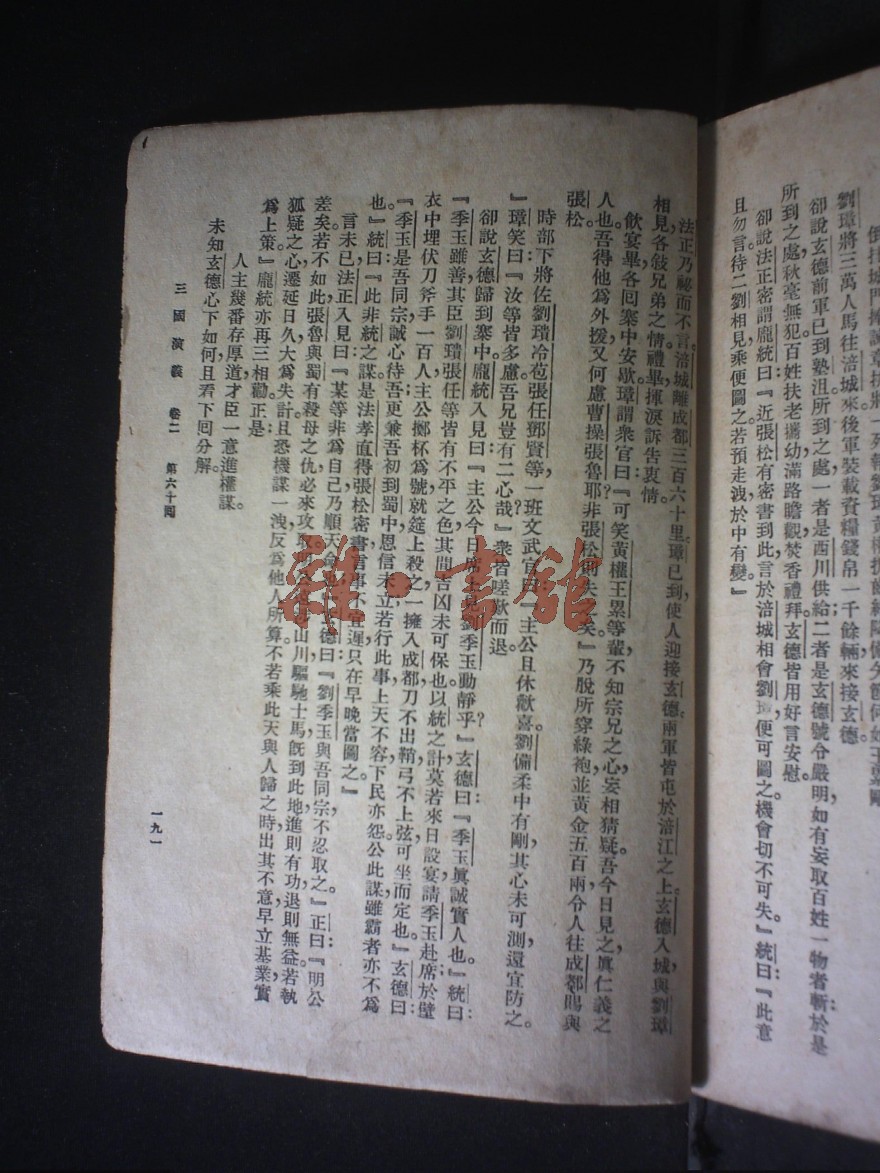 劉璋將三萬人馬往涪城來後軍裝載資糧錢帛一千餘輛來接玄德。
卻說玄德前軍已到墊沮所到之處一者是西川供給二者是玄德號令嚴明如有妄取百姓一物者斬於是
所到之處秋毫無犯百姓扶老攜幼滿路瞻觀焚香禮拜玄德皆用好言安慰
卻說法正密謂龐統曰『近張松有密書到此言於涪城相會劉璋便可圖之機會切不可失』統曰『此意
且勿言待二劉相見乘便圖之若預走洩於中有變』
法正乃祕而不言涪城離成都三百六十里璋已到使人迎接玄德兩軍皆屯於涪江之上玄德入城與劉璋
相見各敍兄弟之情禮畢揮淚訴告衷情。
飲宴畢各回寨中安歇璋謂衆官曰『可笑黃權王累等輩不知宗兄之心妄相猜疑吾今日見之眞仁義之
人也吾得他爲外援又何慮曹操張魯耶非張松則失之矣』乃脫所穿綠袍並黃金五百兩令人往成都賜與
張松
時部下將佐劉璝冷苞張任鄧賢等一班文武官曰『主公且休歡喜劉備柔中有剛其心未可測還宜防之。
』璋笑曰『汝等皆多慮吾兄豈有二心哉』衆皆嗟歎而退
卻說玄德歸到寨中龐統入見曰『主公今日席上見劉季玉動靜乎？』玄德曰『季玉眞誠實人也。』統曰
『季玉雖善其臣劉璝張任等皆有不平之色其間吉凶未可保也以統之計莫若來日設宴請季玉赴席於壁
衣中埋伏刀斧手一百人主公擲杯爲號就筵上殺之一擁入成都刀不出鞘弓不上弦可坐而定也。』玄德曰
『季玉是吾同宗誠心待吾更兼吾初到蜀中恩信未立若行此事上天不容下民亦怨公此謀雖霸者亦不爲
也』統曰『此非統之謀是法孝直得張松密書言事不宜遲只在早晚當圖之』
言未已法正入見曰『某等非爲自己乃順天命也』玄德曰『劉季玉與吾同宗不忍取之』正曰『明公
差矣若不如此張魯與蜀有殺母之仇必來攻取明公遠涉山川驅馳士馬旣到此地進則有功退則無益若執
狐疑之心遷延日久大爲失計且恐機謀一洩反爲他人所算不若乘此天與人歸之時出其不意早立基業實
爲上策』龐統亦再三相勸正是
人主幾番存厚道才臣一意進權謀。
未知玄德心下如何且看下回分解。
三國演義 卷二 第六十回
一九一
雜·書館